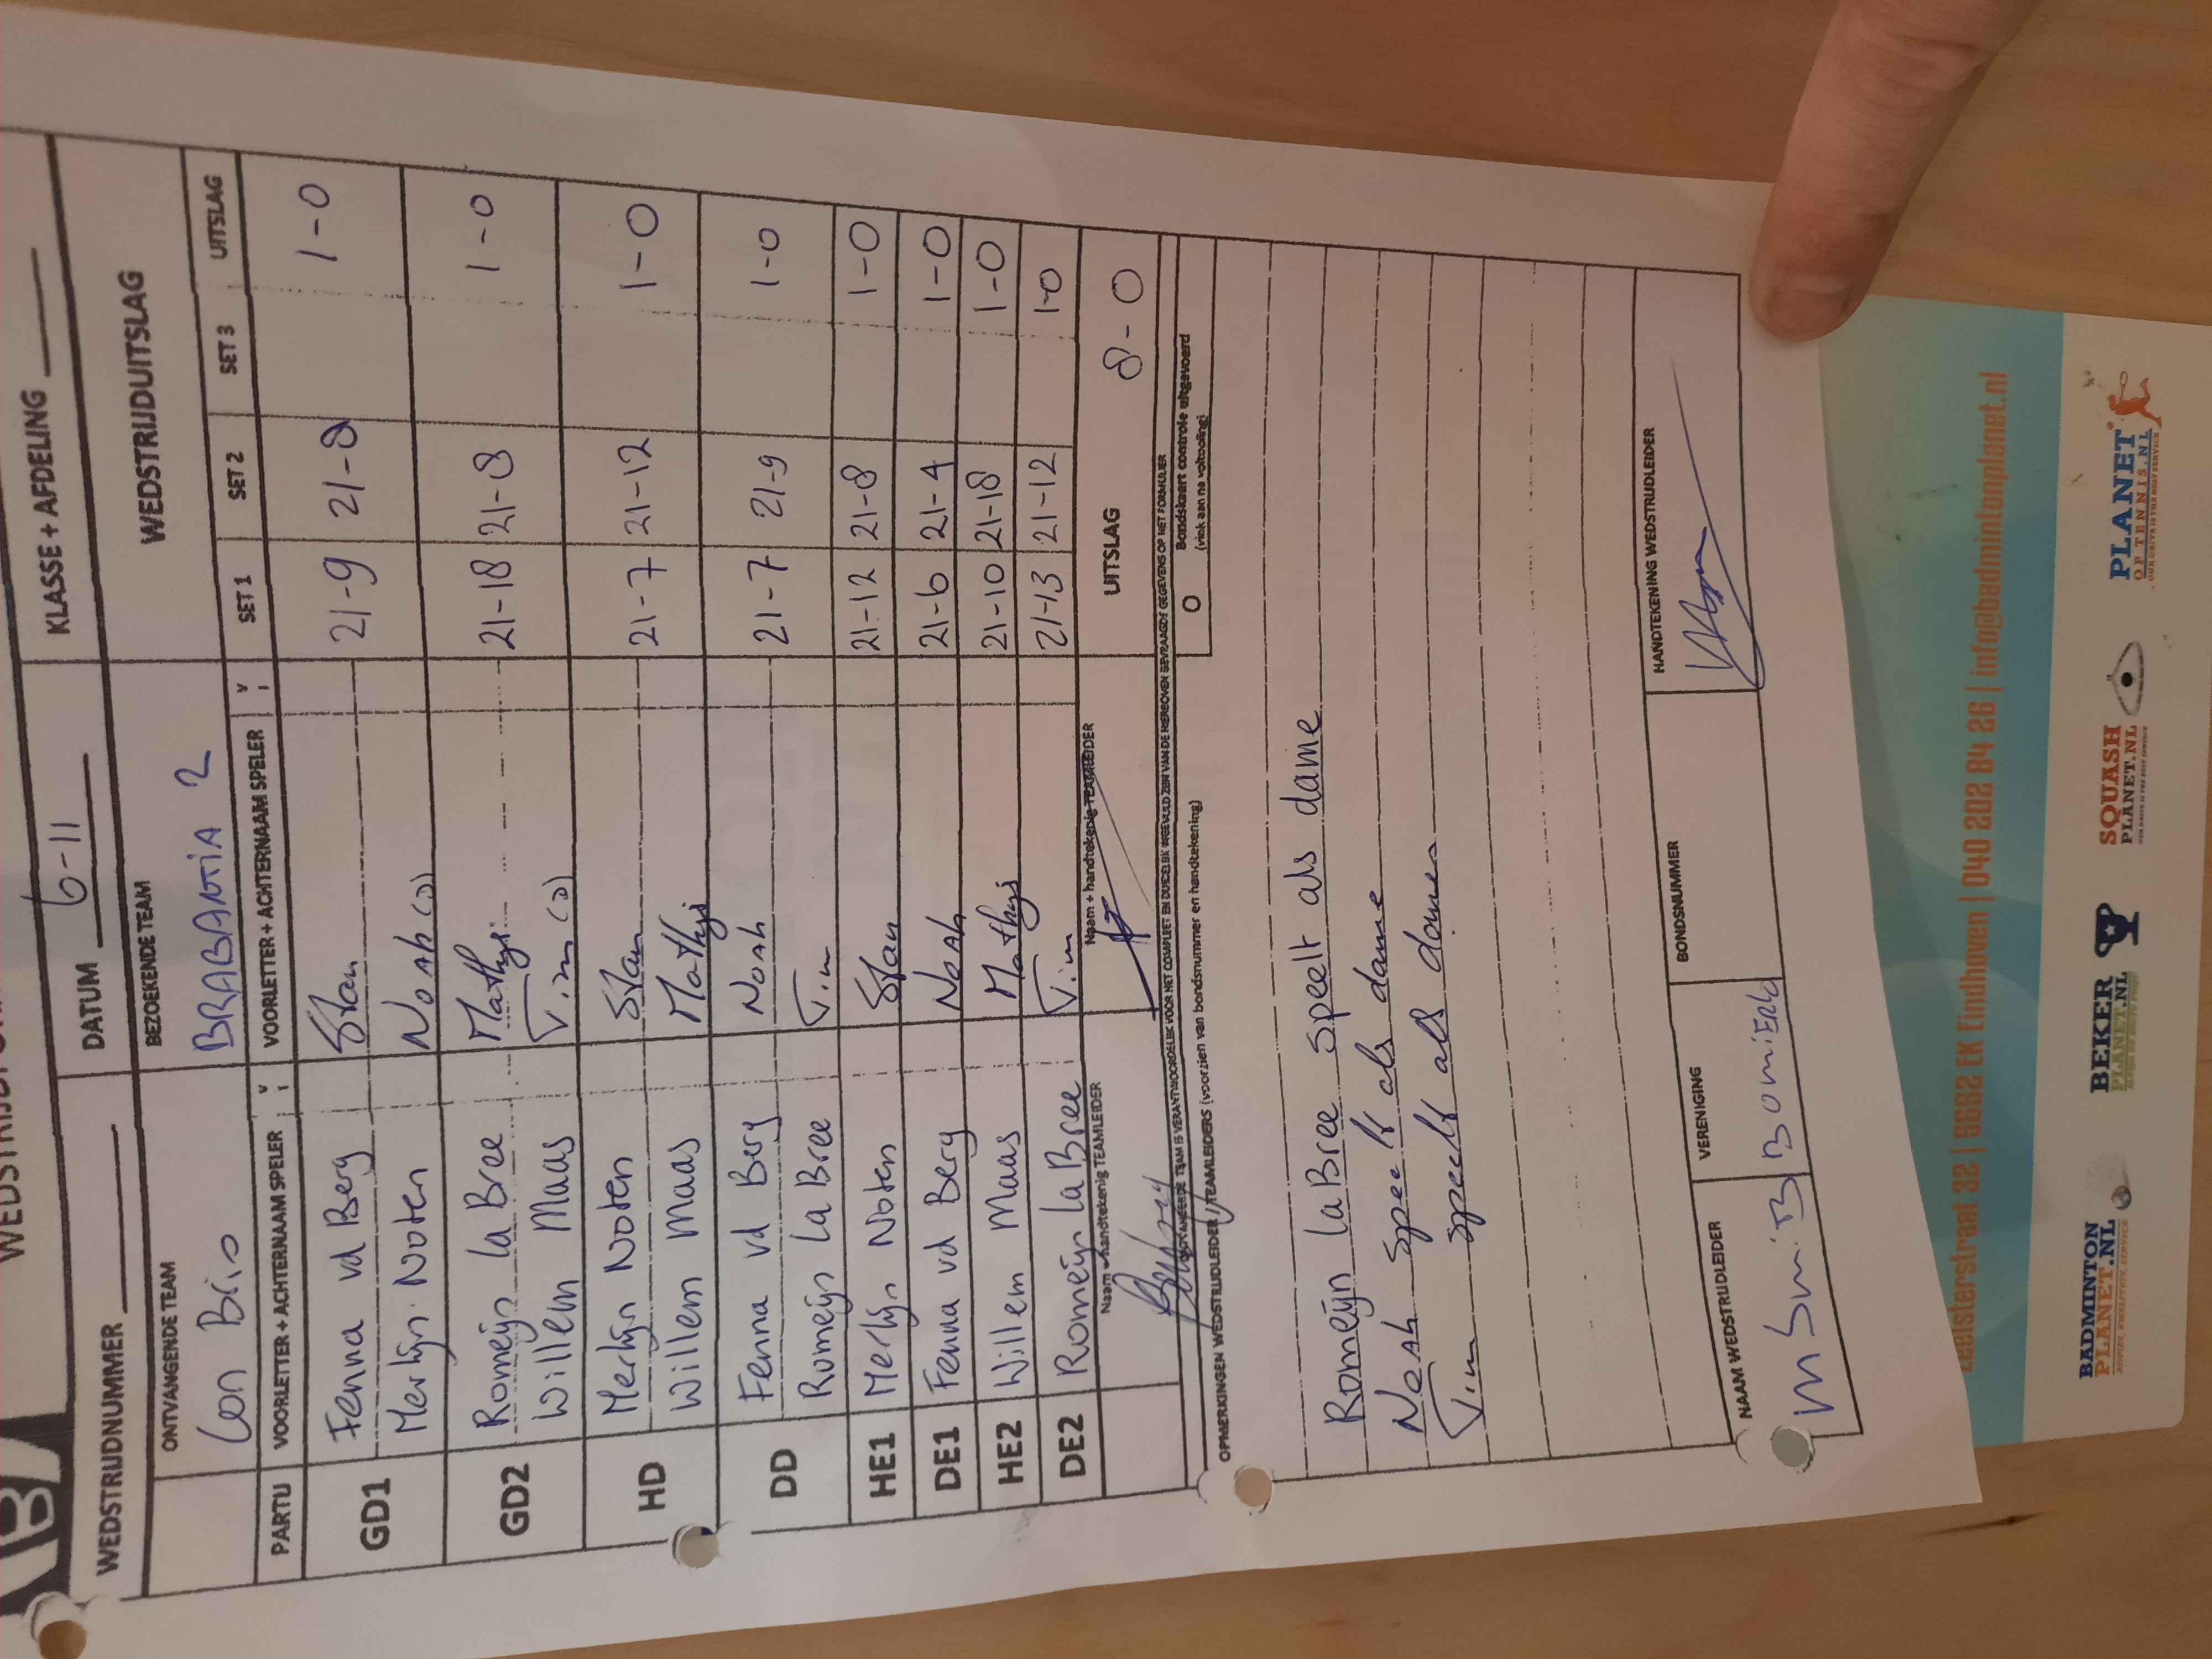 WEDSTRIJDNUMMER
DATUM 6-11
KLASSE + AFDELING
ONTVANGENDE TEAM
BEZOEKENDE TEAM
WEDSTRIJDUITSLAG
Con Brio
BRABANTIA 2
PARTIJ VOORLETTER + ACHTERNAAM SPELER V VOORLETTER + ACHTERNAAM SPELER V SET 1 SET 2 SET 3 UITSLAG
GD1 Fenna vd Berg Stan 21-9 21-8 1-0
Merlijn Noten Noah (D)
GD2 Romeijn La Bree Mathijs 21-18 21-8 1-0
Willem Maas Tim (D)
HD Merlijn Noten Stan 21-7 21-12 1-0
Willem Maas Mathijs
DD Fenna vd Berg Noah 21-7 21-9 1-0
Romeijn La Bree Tim
HE1 Merlijn Noten Stan 21-12 21-8 1-0
DE1 Fenna vd Berg Noah 21-6 21-4 1-0
HE2 Willem Maas Mathijs 21-10 21-18 1-0
DE2 Romeijn La Bree Tim 21-13 21-12 1-0
Naam + handtekenig TEAMLEIDER
Naam + handtekenig TEAMLEIDER
UITSLAG 8-0
ONTVANGENDE TEAM IS VERANTWOORDELIJK VOOR HET COMPLEET EN DUIDELIJK INGEVULD ZIJN VAN DE HIERBOVEN GEVRAAGDE GEGEVENS OP HET FORMULIER
OPMERKINGEN WEDSTRIJDLEIDER / TEAMLEIDERS (voorzien van bondsnummer en handtekening)
O Bondskaart controle uitgevoerd
(vink aan na voltooiing)
Romeijn La Bree speelt als dame
Noah speelt als dame
Tim speelt als dame
NAAM WEDSTRIJDLEIDER
VERENIGING
BONDSNUMMER
HANDTEKENING WEDSTRIJDLEIDER
Leeisterstraat 32 | 5692 EK Eindhoven | 040 202 84 26 | info@badmintonplanet.nl
BADMINTON
PLANET.NL
BEKER
PLANET.NL
SQUASH
PLANET.NL
PLANET
OP TENNIS.NL